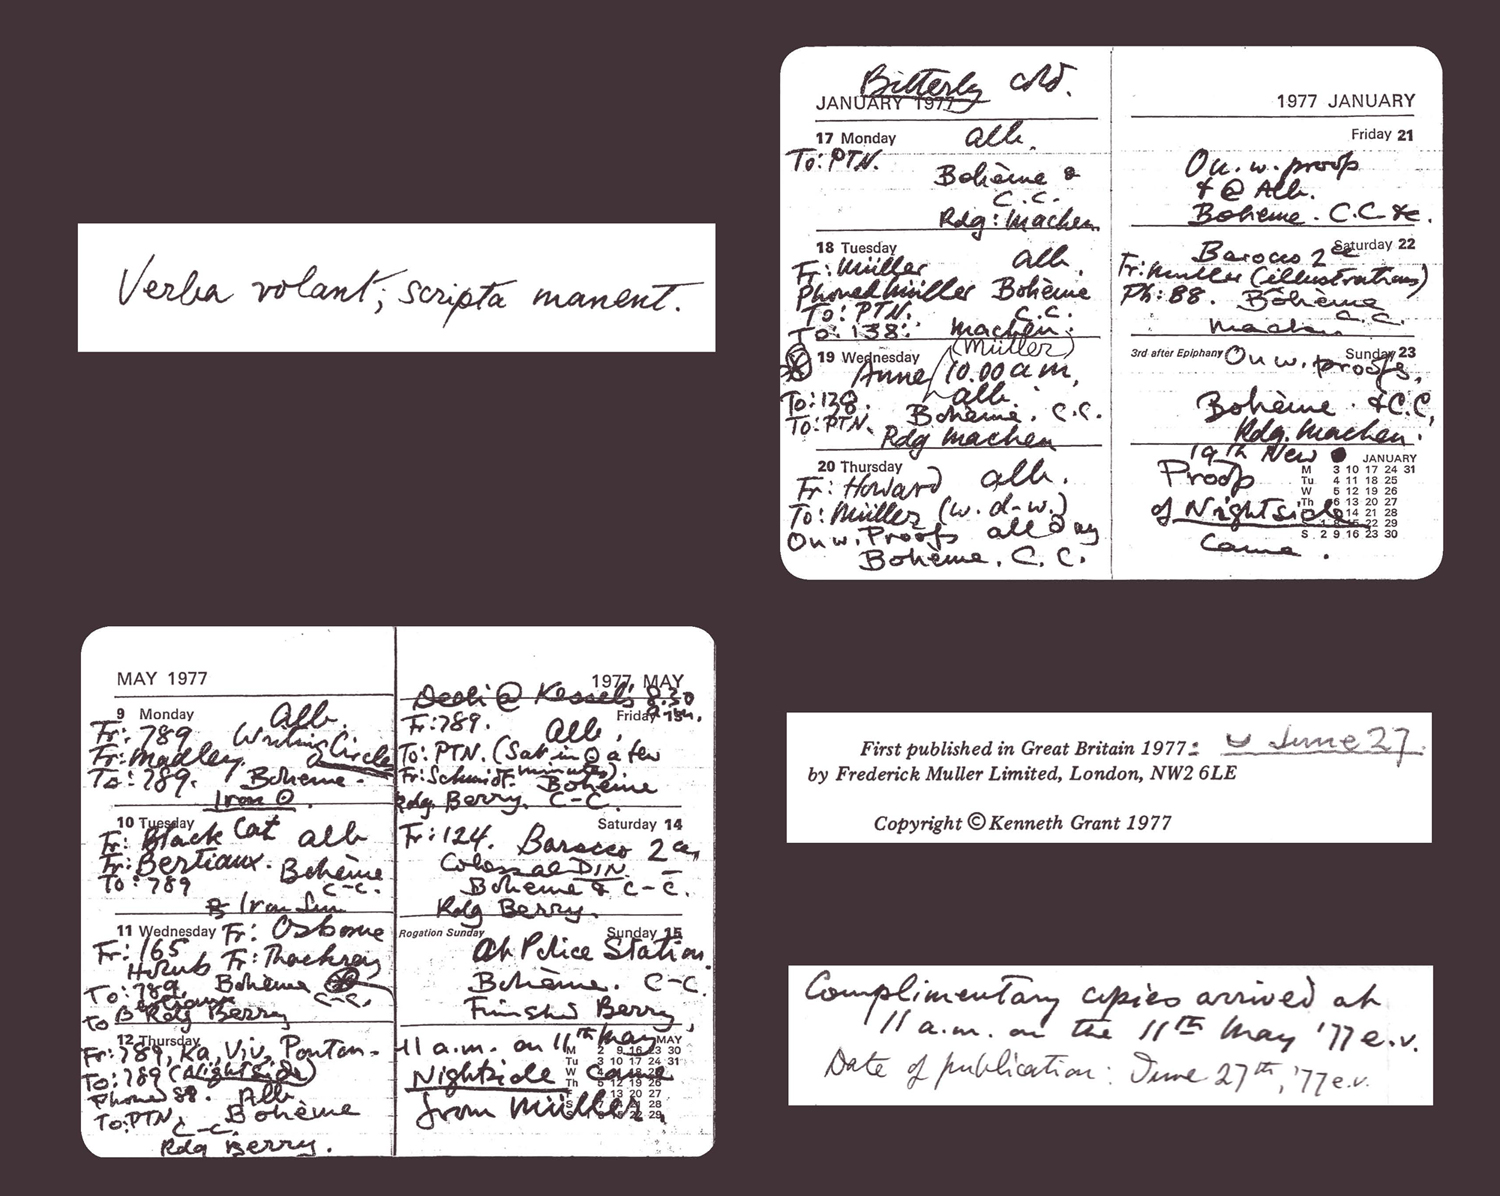 Verba volant; scripta manent.
Bitterly cold.
JANUARY 1977
17 Monday Alb.
To: PTN.
Bohème &
C.C.
Rdg: Machen
18 Tuesday Alb.
Fr: Müller
Phoned Müller Bohème
To: PTN. C.C.
To: 138: Machen.
19 Wednesday (Müller)
Anne 10.00 a.m,
To: 138. Alb.
To: PTN. Bohème. C.C.
Rdg Machen
20 Thursday Alb.
Fr: Howard
To: Müller (w. d-w.)
On w. Proofs all day
Bohème. C.C.
1977 JANUARY
Friday 21
On. w. proofs
+ @ Alb.
Bohème. C.C &c.
Saturday 22
Barocco 2ce
Fr: Muller (illustrations)
Ph: 88. Bohème
C.C.
Machen
3rd after Epiphany Sunday 23
On w. proofs,
Bohème. & C.C,
Rdg. Machen.
19th New
JANUARY
M 3 10 17 24 31
Tu 4 11 18 25
W 5 12 19 26
Th 6 13 20 27
14 21 28
S 1 8 15 22 29
S 2 9 16 23 30
Proofs
of Nightside
came.
MAY 1977
9 Monday Alb.
Fr: 789 Writing Circle
Fr: Madley
To: 789. Bohème.
Iron
10 Tuesday
Fr: Black Cat Alb
Fr: Bertiaux. Bohème
To: 789 C-C.
Iron Sun
11 Wednesday Fr: Osborne
Fr: 165 Fr: Thackrey
Bohème
To: 789, C-C,
To Bertiaux
Rdg Berry
12 Thursday
Fr: 789, Ka, Viv, Ponton-
To: 789 (Nightside)
Phoned 88. Alb
To: PTN Bohème
C-C.
Rdg Berry.
1977 MAY
@ Kessel's 8.30
Friday
Fr: 789. Alb,
To: PTN. (Sat in a few
minutes)
Fr: Schmidt. Bohème
Rdg. Berry. C-C.
Saturday 14
Fr: 124. Barocco 2ce,
Colossal DIN
Bohème & C-C.
Rdg Berry.
Rogation Sunday Sunday 15
At Police Station.
Bohème. C-C.
Finished Berry,
11 a.m. on 11th May
MAY
M 2 9 16 23 30
Tu 3 10 17 24 31
W 4 18 25
Th 5 12 19 26
13 20 27
28
S 15 22 29
Nightside came
from Müller.
First published in Great Britain 1977: June 27.
by Frederick Muller Limited, London, NW2 6LE
Copyright © Kenneth Grant 1977
Complimentary copies arrived at
11 a.m. on the 11th May '77 e.v.
Date of publication: June 27th, '77 e.v.